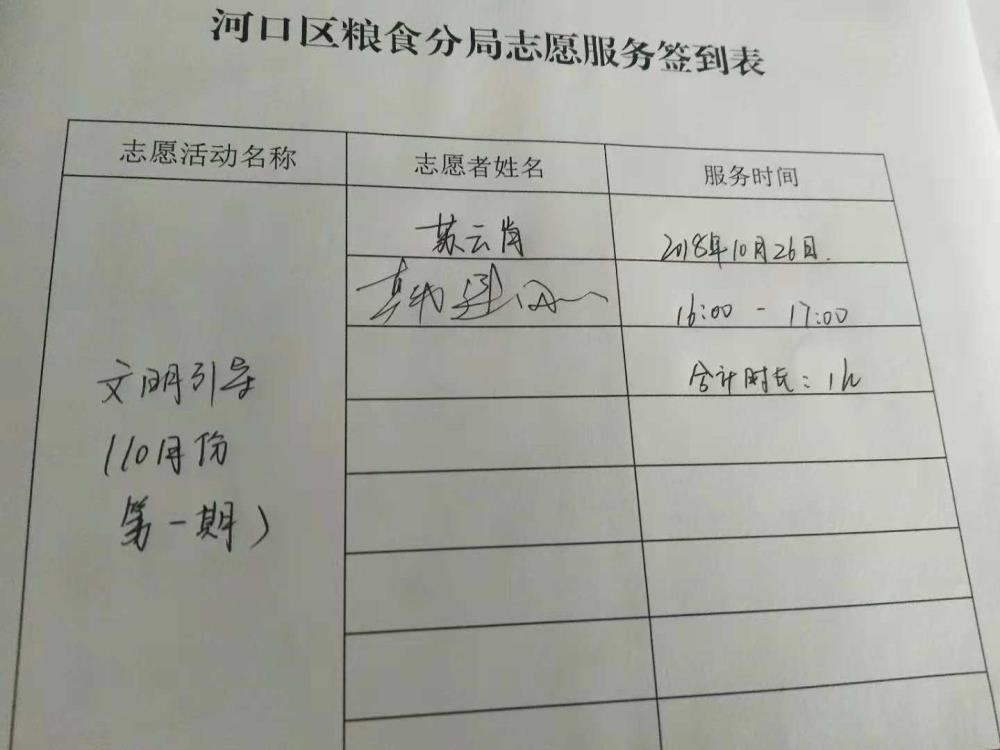 河口区粮食分局志愿服务签到表
志愿活动名称
志愿者姓名
服务时间
苏云肖
2018年10月26日.
16:00 - 17:00
合计时长：1h
文明引导
(10月份
第一期)